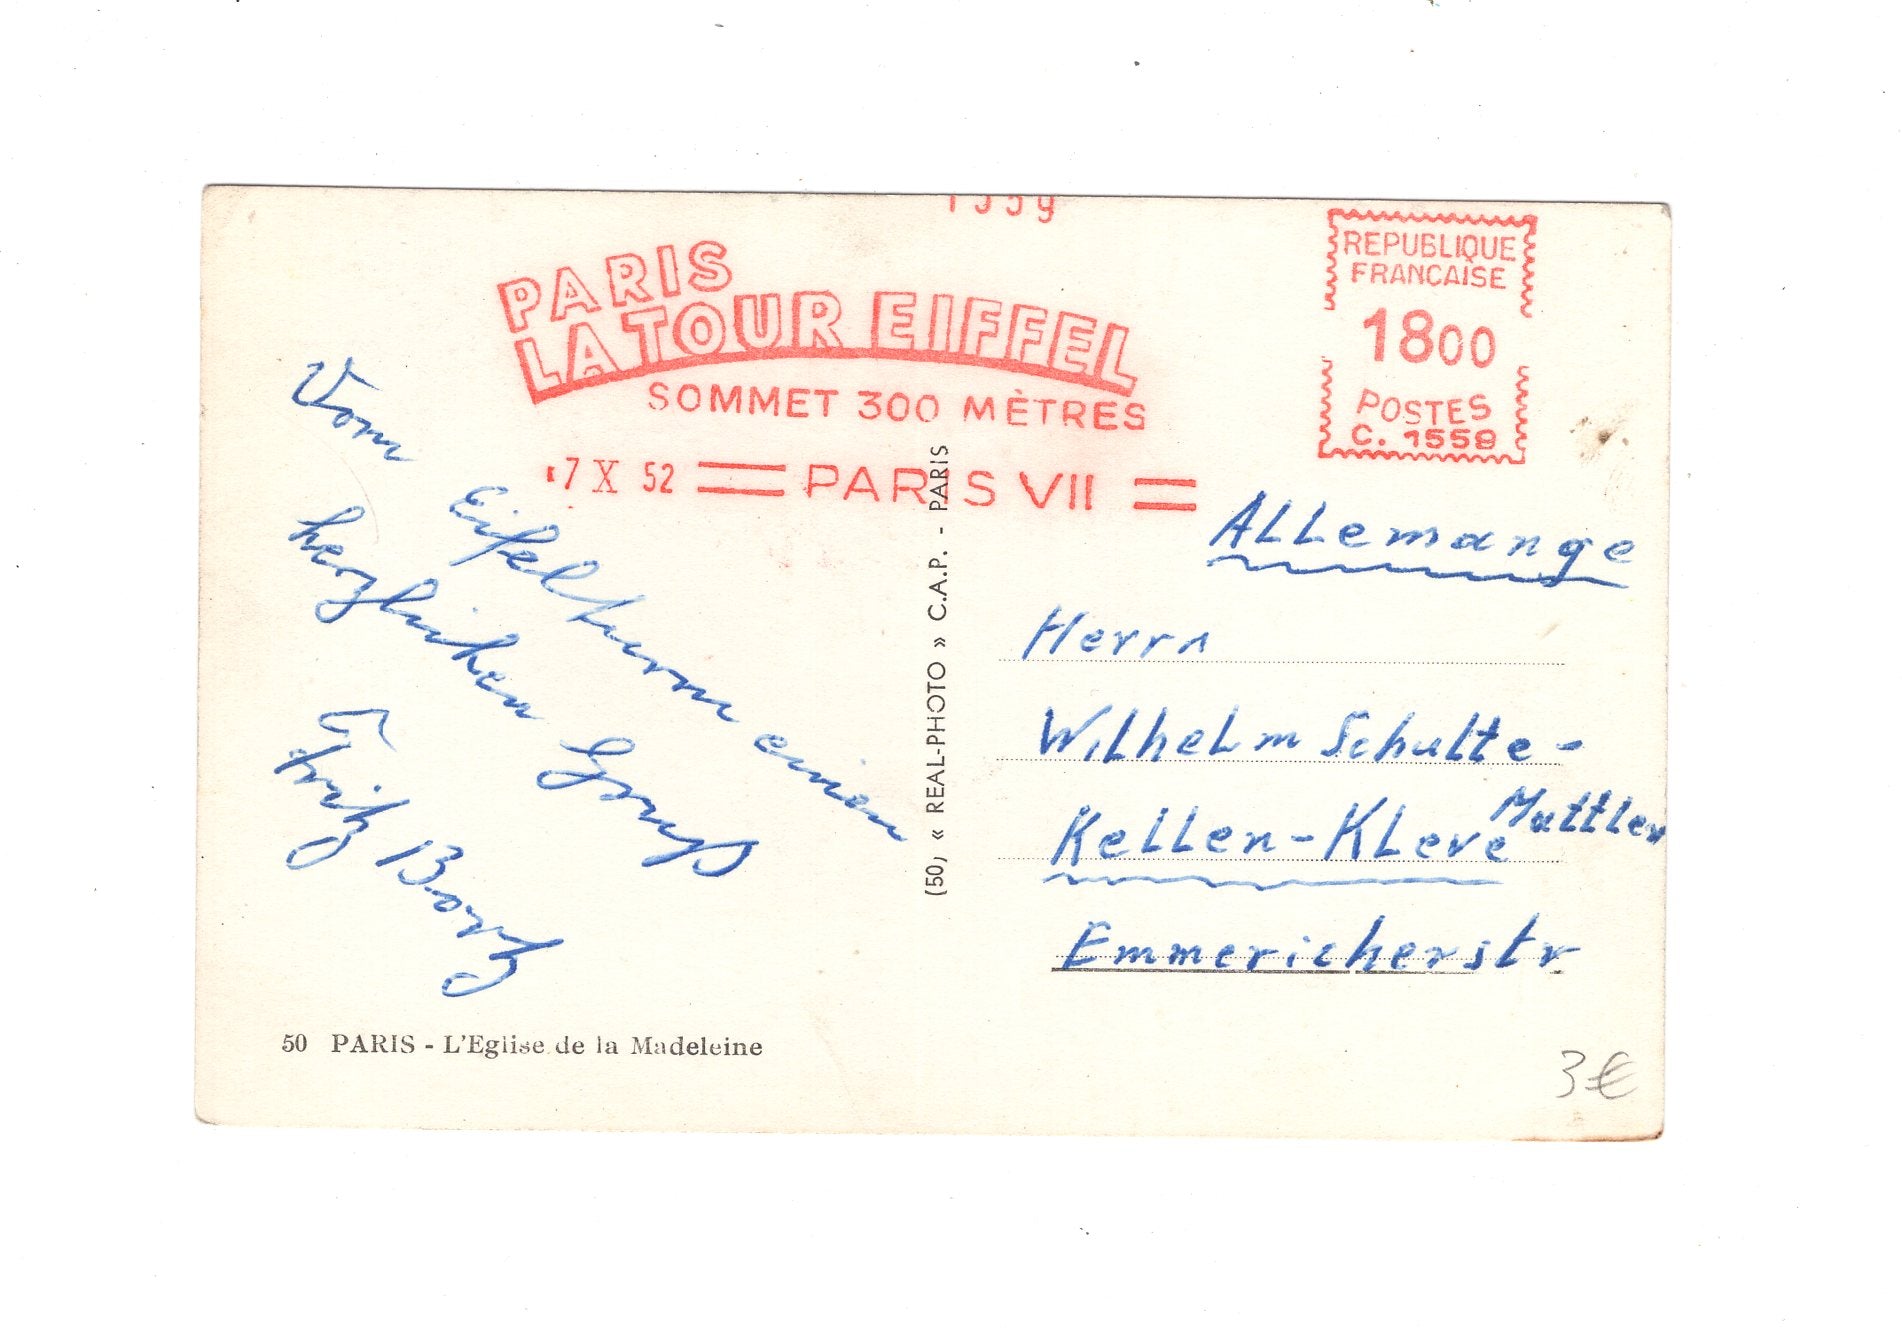 PARIS
LA TOUR EIFFEL
SOMMET 300 MÈTRES
7 X 52 PARIS VII
REPUBLIQUE
FRANCAISE
1800
POSTES
C. 1559
Vom
Eifelturm einen
herzlichen Gruß
Fritz
(50) « REAL-PHOTO » C.A.P. - PARIS
Allemange
Herrn
Wilhelm Schulte-
Mattler
Kellen-Kleve
Emmericherstr
50 PARIS - L'Eglise de la Madeleine
3€